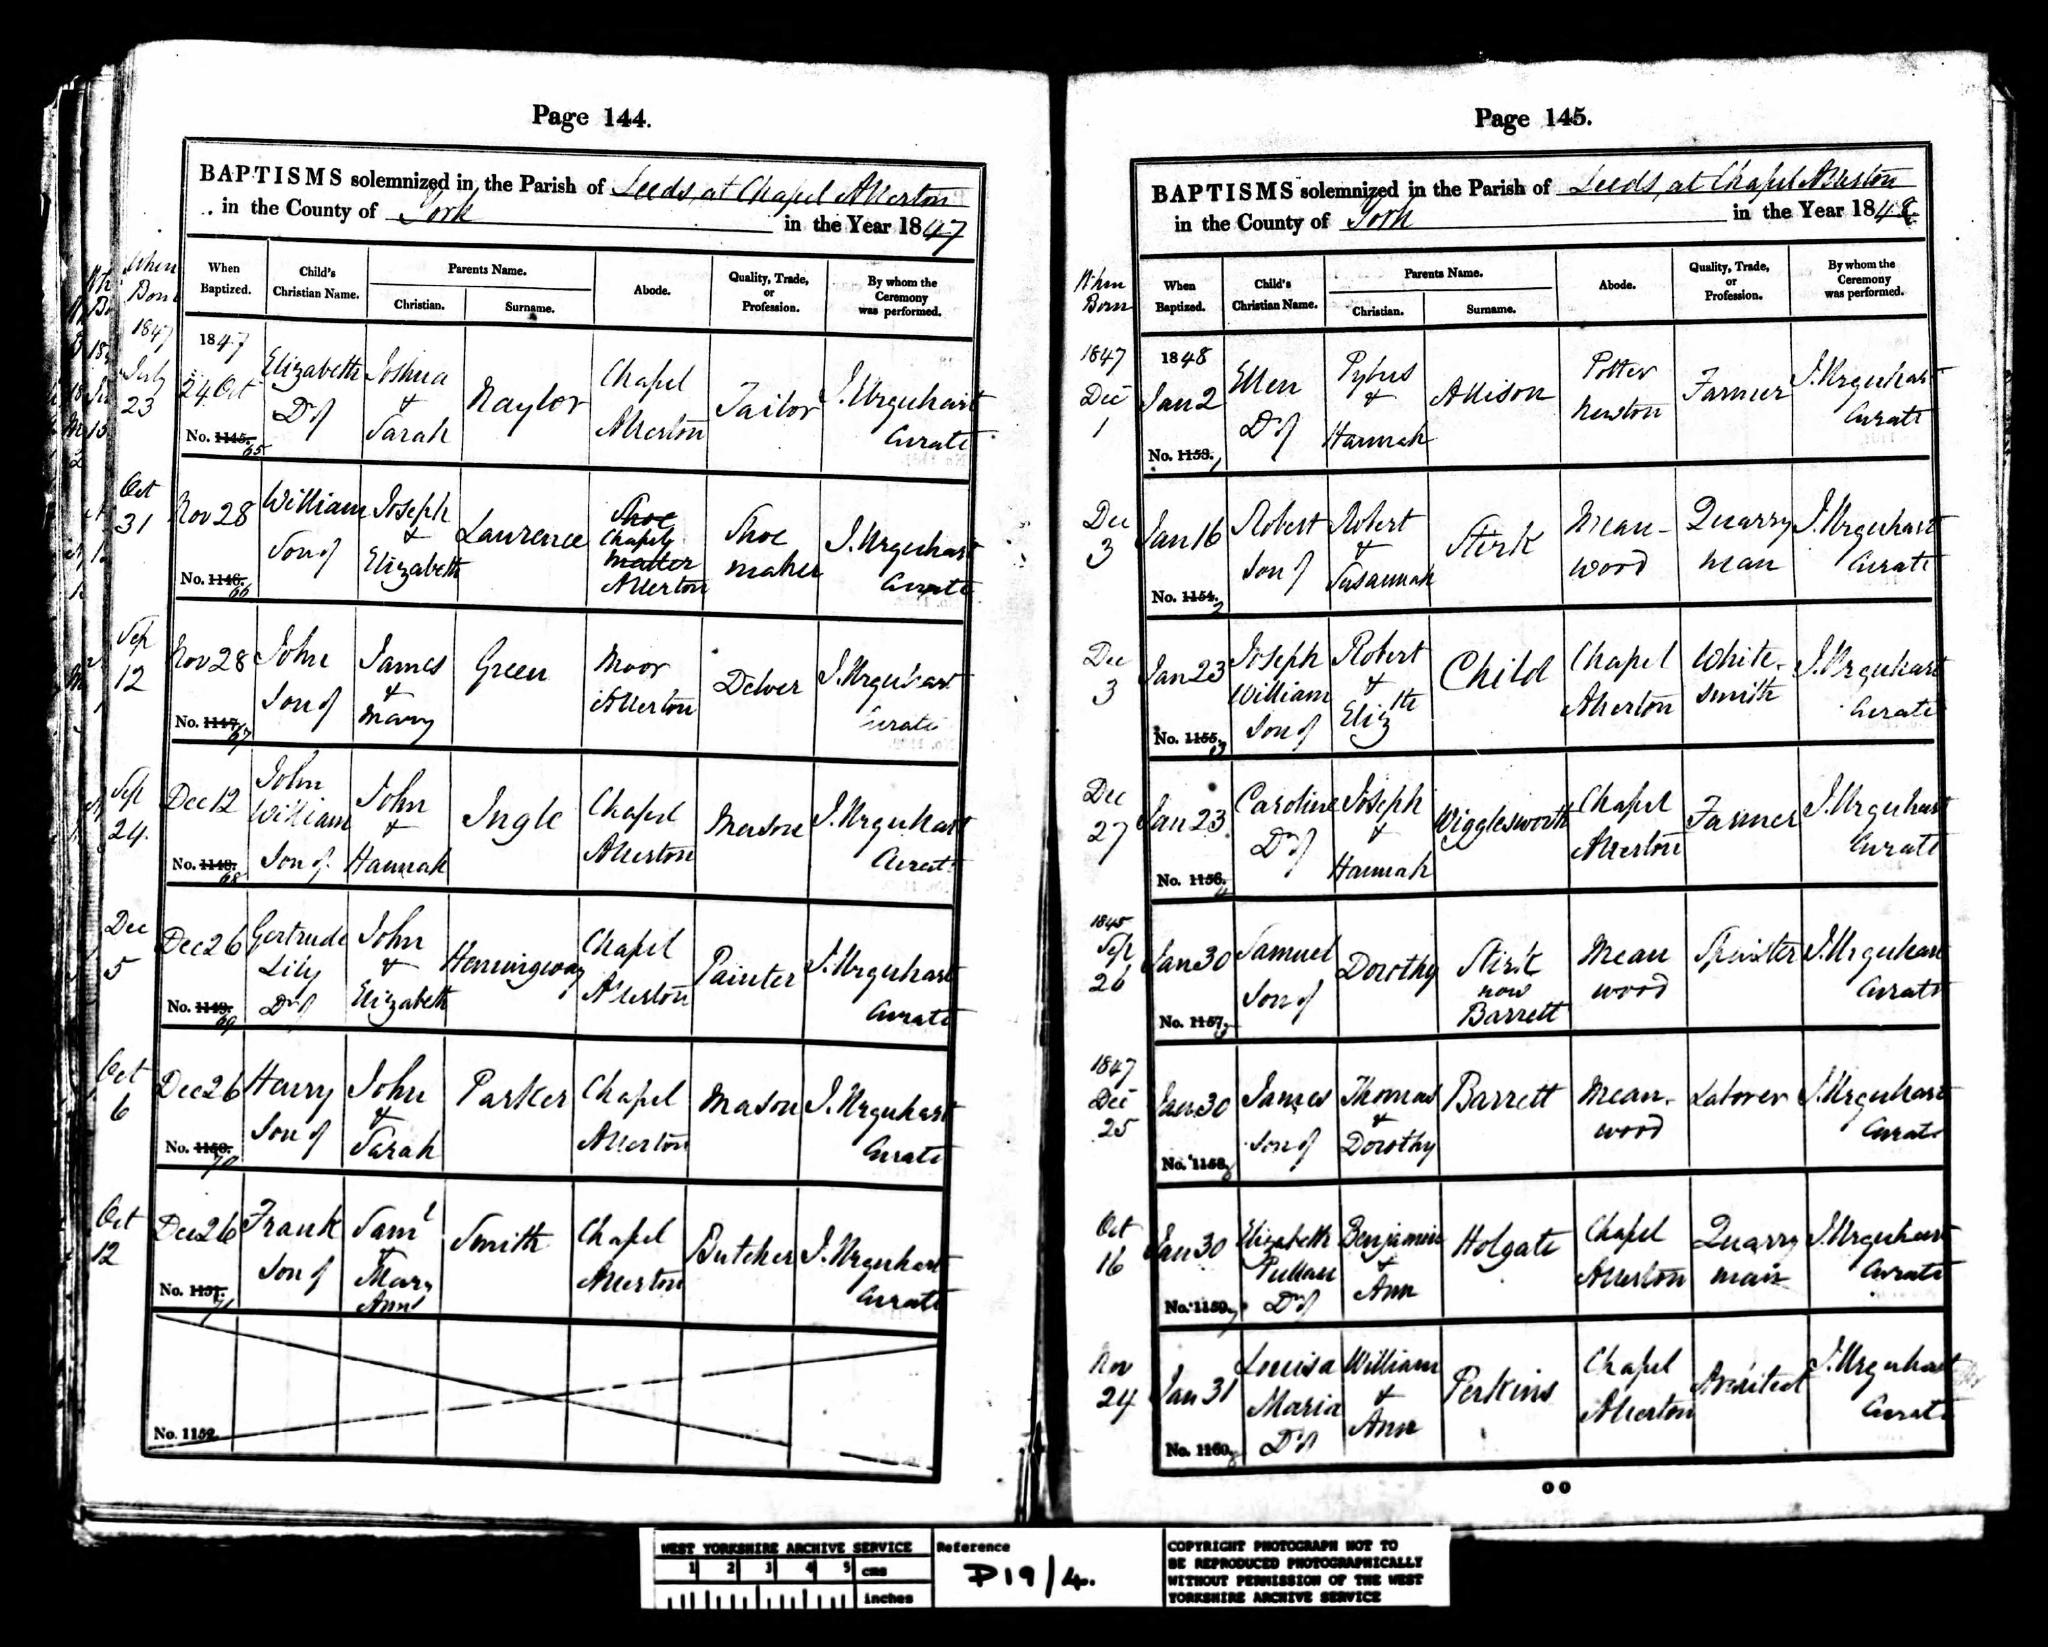 Page 144.
BAPTISMS solemnized in the Parish of Leeds, at Chapel Allerton
in the County of York in the Year 1847
When Born
When Baptized.
Child's Christian Name.
Parents Name.
Christian.
Surname.
Abode.
Quality, Trade, or Profession.
By whom the Ceremony was performed.
1847 July 23
1847 24 Oct
No. 1145. 65
Elizabeth Dr of
Joshua & Sarah
Naylor
Chapel Allerton
Tailor
J. Urquhart Curate
Oct 31
Nov 28
No. 1146. 66
William Son of
Joseph & Elizabeth
Laurence
Shoe Chapel maker Allerton
Shoe maker
J. Urquhart Curate
Sep 12
Nov 28
No. 1147. 67
John Son of
James & Mary
Green
Moor Allerton
Delver
J. Urquhart Curate
Sep 24.
Dec 12
No. 1148. 68
John William Son of
John & Hannah
Ingle
Chapel Allerton
Mason
J. Urquhart Curate
Dec 5
Dec 26
No. 1149. 69
Gertrude Lily Dr of
John & Elizabeth
Hemingway
Chapel Allerton
Painter
J. Urquhart Curate
Oct 6
Dec 26
No. 1150. 70
Henry Son of
John & Sarah
Parker
Chapel Allerton
Mason
J. Urquhart Curate
Oct 12
Dec 26
No. 1151. 71
Frank Son of
Saml & Mary Ann
Smith
Chapel Allerton
Butcher
J. Urquhart Curate
No. 1152.
Page 145.
BAPTISMS solemnized in the Parish of Leeds, at Chapel Allerton
in the County of York in the Year 1848
When Born
When Baptized.
Child's Christian Name.
Parents Name.
Christian.
Surname.
Abode.
Quality, Trade, or Profession.
By whom the Ceremony was performed.
1847 Dec 1
1848 Jan 2
No. 1153. 1
Ellen Dr of
Pybus & Hannah
Allison
Potter Newton
Farmer
J. Urquhart Curate
Dec 3
Jan 16
No. 1154. 2
Robert Son of
Robert & Susannah
Stirk
Mean-wood
Quarry man
J. Urquhart Curate
Dec 3
Jan 23
No. 1155. 3
Joseph William Son of
Robert & Elizth
Child
Chapel Allerton
White-smith
J. Urquhart Curate
Dec 27
Jan 23
No. 1156. 4
Caroline Dr of
Joseph & Hannah
Wigglesworth
Chapel Allerton
Farmer
J. Urquhart Curate
1845 Sep 26
Jan 30
No. 1157. 5
Samuel Son of
Dorothy
Stirk now Barrett
Mean wood
Spinster
J. Urquhart Curate
1847 Dec 25
Jan 30
No. 1158. 6
James Son of
Thomas & Dorothy
Barrett
Mean-wood
Laborer
J. Urquhart Curate
Oct 16
Jan 30
No. 1159. 7
Elizabeth Pullan Dr of
Benjamin & Ann
Holgate
Chapel Allerton
Quarry man
J. Urquhart Curate
Nov 24
Jan 31
No. 1160. 8
Louisa Maria Dr of
William & Ann
Perkins
Chapel Allerton
Architect
J. Urquhart Curate
WEST YORKSHIRE ARCHIVE SERVICE
1 2 3 4 5 cms
inches
Reference
P19/4.
COPYRIGHT PHOTOGRAPH NOT TO
BE REPRODUCED PHOTOGRAPHICALLY
WITHOUT PERMISSION OF THE WEST
YORKSHIRE ARCHIVE SERVICE